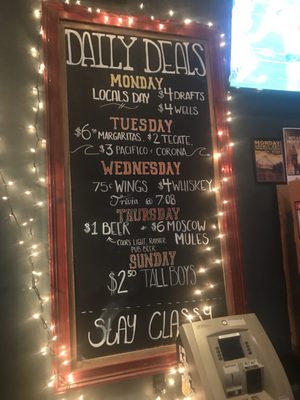 DAILY DEALS
MONDAY
LOCALS DAY $4 DRAFTS
$4 WELLS
TUESDAY
$6 MARGARITAS, $2 TECATE,
$3 PACIFICO + CORONA
WEDNESDAY
75¢ WINGS $4 WHISKEY
Trivia @ 7:08
THURSDAY
$1 BEER + $6 MOSCOW
MULES
COORS LIGHT, RAINIER,
PUB BEER
SUNDAY
$2.50 TALL BOYS
STAY CLASSY
MONDAY